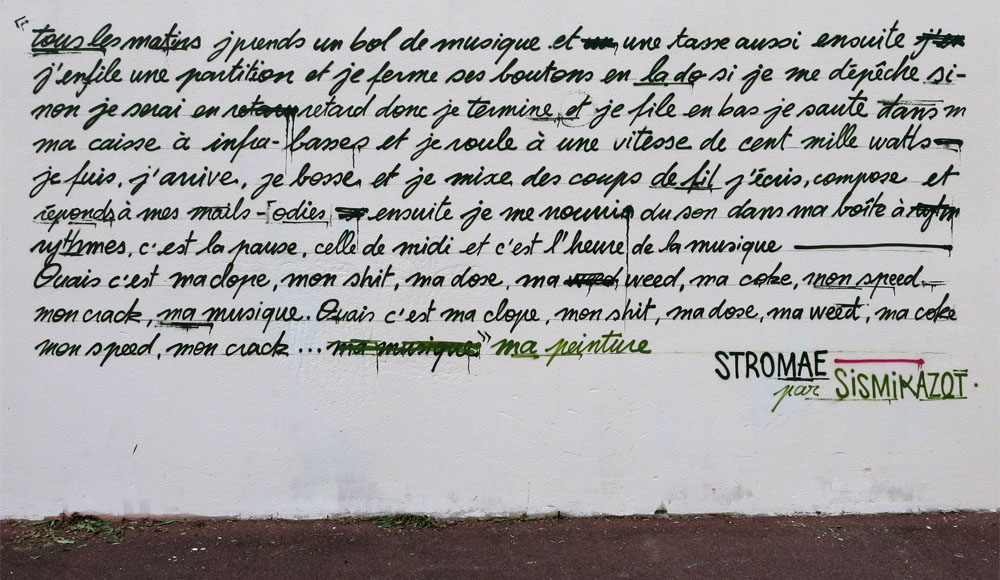 « tous les matins j'prends un bol de musique et une tasse aussi ensuite j'en
j'enfile une partition et je ferme ses boutons en la do si je me dépêche si-
non je serai en retard retard donc je termine et je file en bas je saute dans m
ma caisse à infra-basses et je roule à une vitesse de cent mille watts
je fuis, j'arrive, je bosse, et je mixe des coups de fil j'écris, compose et
réponds à mes mails-odies ensuite je me nourris du son dans ma boîte à rythm
rythmes, c'est la pause, celle de midi et c'est l'heure de la musique
Ouais c'est ma clope, mon shit, ma dose, ma weed weed, ma coke, mon speed,
mon crack, ma musique. Ouais c'est ma clope, mon shit, ma dose, ma weed, ma coke
mon speed, mon crack ... ma musique » ma peinture
STROMAE
par SiSMiKAZOT.